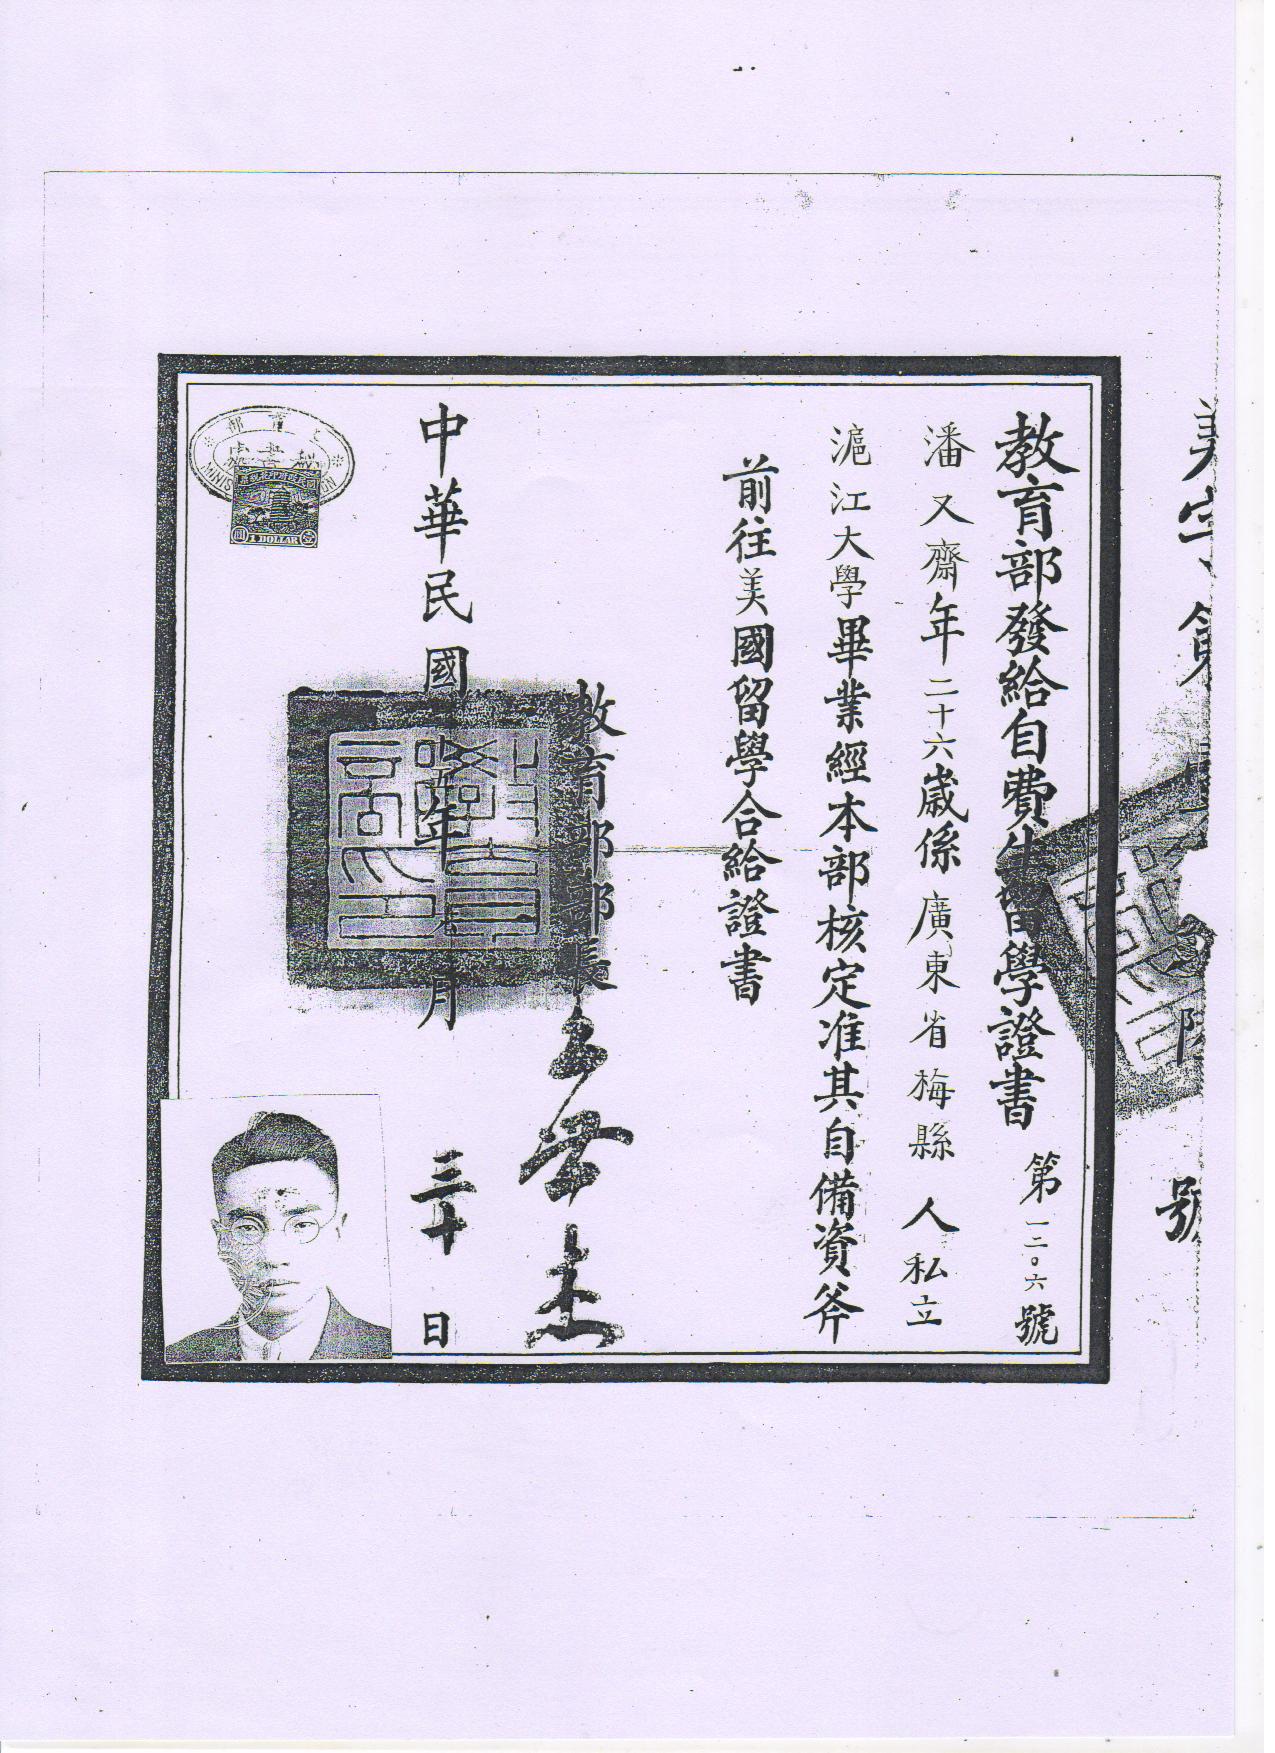 美字第
號
教育部發給自費生留學證書 第一二〇六號
潘又齋年二十六歲係廣東省梅縣人私立
滬江大學畢業經本部核定准其自備資斧
前往美國留學合給證書
教育部部長王世杰
中華民國廿五年 月三十日
育部
MINIS
1 DOLLAR